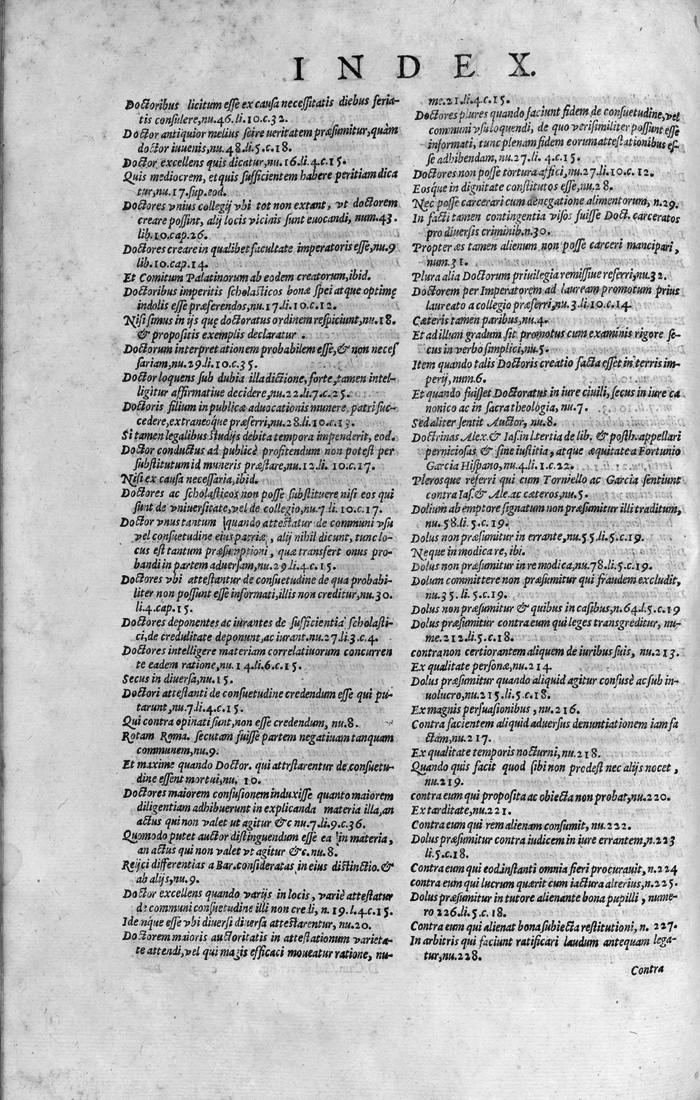 INDEX.
Doctoribus licitum esse ex causa necessitatis diebus feria-
tis consulere, nu.46.li.10.c.32.
Doctor antiquior melius scire veritatem præsumitur, quàm
doctor iuvenis, nu.48.li.5.c.18.
Doctor excellens quis dicatur, nu.16.li.4.c.15.
Quis mediocrem, et quis sufficientem habere peritiam dica
tur, nu.17.sup.eod.
Doctores vnius collegij vbi tot non extant, vt doctorem
creare possint, alij locis vicinis sunt euocandi, num.43.
lib.10.cap.26.
Doctores creare in qualibet facultate imperatoris esse, nu.9
lib.10.cap.14.
Et Comitum Palatinorum ab eodem creatorum, ibid.
Doctoribus imperitis scholasticos bonæ spei atque optimę
indolis esse præferendos, nu.17.li.10.c.12.
Nisi simus in ijs quę doctoratus ordinem respiciunt, nu.18.
& propositis exemplis declaratur.
Doctorum interpretationem probabilem esse, & non neces
sariam, nu.29.li.10.c.35.
Doctor loquens sub dubia illa dictione, forte, tamen intel-
ligitur affirmatiue decidere, nu.22.li.7.c.25.
Doctoris filium in publicæ aduocationis munere, patri suc-
cedere, extraneoque præferri, nu.28.li.10.c.13.
Si tamen legalibus studijs debita tempora impenderit, eod.
Doctor conductus ad publicè profitendum non potest per
substitutum id muneris præstare, nu.12.li.10.c.17.
Nisi ex causa necessaria, ibid.
Doctores ac scholasticos non posse substituere nisi eos qui
sunt de vniuersitate, vel de collegio, nu.7 li.10.c.17.
Doctor vnus tantum quando attestatur de communi vsu
vel consuetudine eius patriæ, alij nihil dicunt, tunc lo-
cus est tantum præsumptioni, quæ transfert onus pro-
bandi in partem aduersam, nu.29.li.4.c.15.
Doctores vbi attestantur de consuetudine de qua probabi-
liter non possunt esse informati, illis non creditur, nu.30.
li.4.cap.15.
Doctores deponentes ac iurantes de sufficientia scholasti-
ci, de credulitate deponunt, ac iurant. nu.27.li.3.c.4.
Doctores intelligere materiam correlatiuorum concurren
te eadem ratione, nu.14.li.6.c.15.
Secus in diuersa, nu.15.
Doctori attestanti de consuetudine credendum esse qui pu-
tarunt, nu.7.li.4.c.15.
Qui contra opinati sunt, non esse credendum, nu.8.
Rotam Roma. secutam fuisse partem negatiuam tanquam
communem, nu.9.
Et maxime quando Doctor. qui attrstarentur de consuetu-
dine essent mortui, nu, 10.
Doctores maiorem confusionem induxisse quanto maiorem
diligentiam adhibuerunt in explicanda materia illa, an
actus qui non valet ut agitur &c nu.7.li.9.c.36.
Quomodo putet auctor distinguendum esse ea in materia,
an actus qui non valet vt agitur &c. nu.8.
Reijci differentias a Bar. consideratas in eius distinctio. &
ab alijs, nu.9.
Doctor excellens quando varijs in locis, variè attestatur
de communi consuetudine illi non credi, n.19.l.4.c.15.
Idemque esse vbi diuersi diuersa attestarentur, nu.20.
Doctorem maioris auctoritatis in attestationum varieta-
te attendi, vel qui magis efficaci moueatur ratione, nu-
me.21.li.4.c.15.
Doctores plures quando faciunt fidem de consuetudine, vel
communi vsu loquendi, de quo verisimiliter possunt esse
informati, tunc plenam fidem eorum attestationibus es-
se adhibendam, nu.27.li.4.c.15.
Doctores non posse tortura affici, nu.27.li.10.c.12.
Eosque in dignitate constitutos esse, nu.28.
Nec posse carcerari cum denegatione alimentorum, n.29.
In facti tamen contingentia visos fuisse Doct. carceratos
pro diuersis criminib.n.30.
Propter æs tamen alienum non posse carceri mancipari,
num.31.
Plura alia Doctorum priuilegia remissiue referri, nu.32.
Doctorem per Imperatorem ad lauream promotum prius
laureato a collegio præferri, nu.3.li.10.c.14.
Cæteris tamen paribus, nu.4.
Et ad illum gradum sit promotus cum examinis rigore se-
cus in verbo simplici, nu.5.
Item quando talis Doctoris creatio facta esset in terris im-
perij, num.6.
Et quando fuisset Doctoratus in iure ciuili, secus in iure ca
nonico ac in sacra theologia, nu.7.
Sed aliter sentit Auctor, nu.8.
Doctrinas Alex. & Ias. in l. tertia de lib. & posth. appellari
perniciosas & sine iustitia, atque æquitate a Fortunio
Garcia Hispano, nu.4.li.1.c.22.
Plerosque referri qui cum Torniello ac Garcia sentiunt
contra Ias. & Ale. ac cæteros, nu.5.
Dolium ab emptore signatum non præsumitur illi traditum,
nu.58.li.5.c.19.
Dolus non præsumitur in errante, nu.55.li.5.c.19.
Neque in modica re, ibi.
Dolus non præsumitur in re modica, nu.78.li.5.c.19.
Dolum committere non præsumitur qui fraudem excludit,
nu.35.li.5.c.19.
Dolus non præsumitur & quibus in casibus, n.64.l.5.c.19
Dolus præsumitur contra eum qui leges transgreditur, nu-
me.212.li.5.c.18.
contra non certiorantem aliquem de iuribus suis, nu.213.
Ex qualitate personæ, nu.214.
Dolus præsumitur quando aliquid agitur confusè ac sub in-
uolucro, nu.215.li.5.c.18.
Ex magnis persuasionibus, nu.216.
Contra facientem aliquid aduersus denuntiationem iam fa
ctam, nu.217.
Ex qualitate temporis nocturni, nu.218.
Quando quis facit quod sibi non prodest nec alijs nocet,
nu.219.
contra eum qui proposita ac obiecta non probat, nu.220.
Ex tarditate, nu.221.
Contra eum qui rem alienam consumit, nu.222.
Dolus præsumitur contra iudicem in iure errantem, n.223
li.5.c.18.
Contra eum qui eod. instanti omnia fieri procurauit, n.224
contra eum qui lucrum quærit cum iactura alterius, n.225.
Dolus præsumitur in tutore alienante bona pupilli, nume-
ro 226.li.5.c.18.
Contra eum qui alienat bona subiecta restitutioni, n. 227.
In arbitris qui faciunt ratificari laudum antequam lega-
tur, nu.228.
Contra